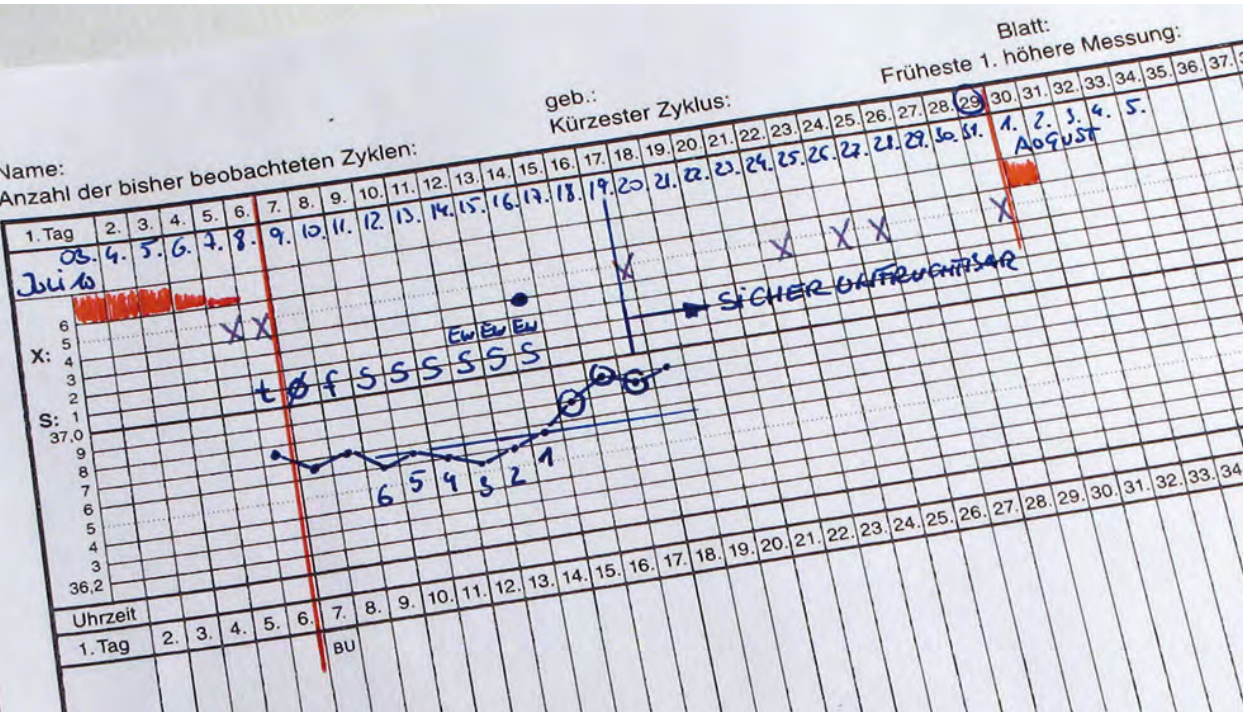 Blatt:
geb.:
Früheste 1. höhere Messung:
Name:
Kürzester Zyklus:
Anzahl der bisher beobachteten Zyklen:
1. Tag 2. 3. 4. 5. 6. 7. 8. 9. 10. 11. 12. 13. 14. 15. 16. 17. 18. 19. 20. 21. 22. 23. 24. 25. 26. 27. 28. 29. 30. 31. 32. 33. 34. 35. 36. 37.
03. 4. 5. 6. 7. 8. 9. 10. 11. 12. 13. 14. 15. 16. 17. 18. 19. 20. 21. 22. 23. 24. 25. 26. 27. 28. 29. 30. 31. 1. 2. 3. 4. 5.
AUGUST
X X X X X
SICHER UNFRUCHTBAR
6
X X
5
Ew Ew Ew
X: 4
3
t ø f S S S S S S
2
S: 1
37,0
9
8
7
6 5 4 3 2 1
6
5
4
3
36,2
Uhrzeit
1. Tag 2. 3. 4. 5. 6. 7. 8. 9. 10. 11. 12. 13. 14. 15. 16. 17. 18. 19. 20. 21. 22. 23. 24. 25. 26. 27. 28. 29. 30. 31. 32. 33. 34.
BU